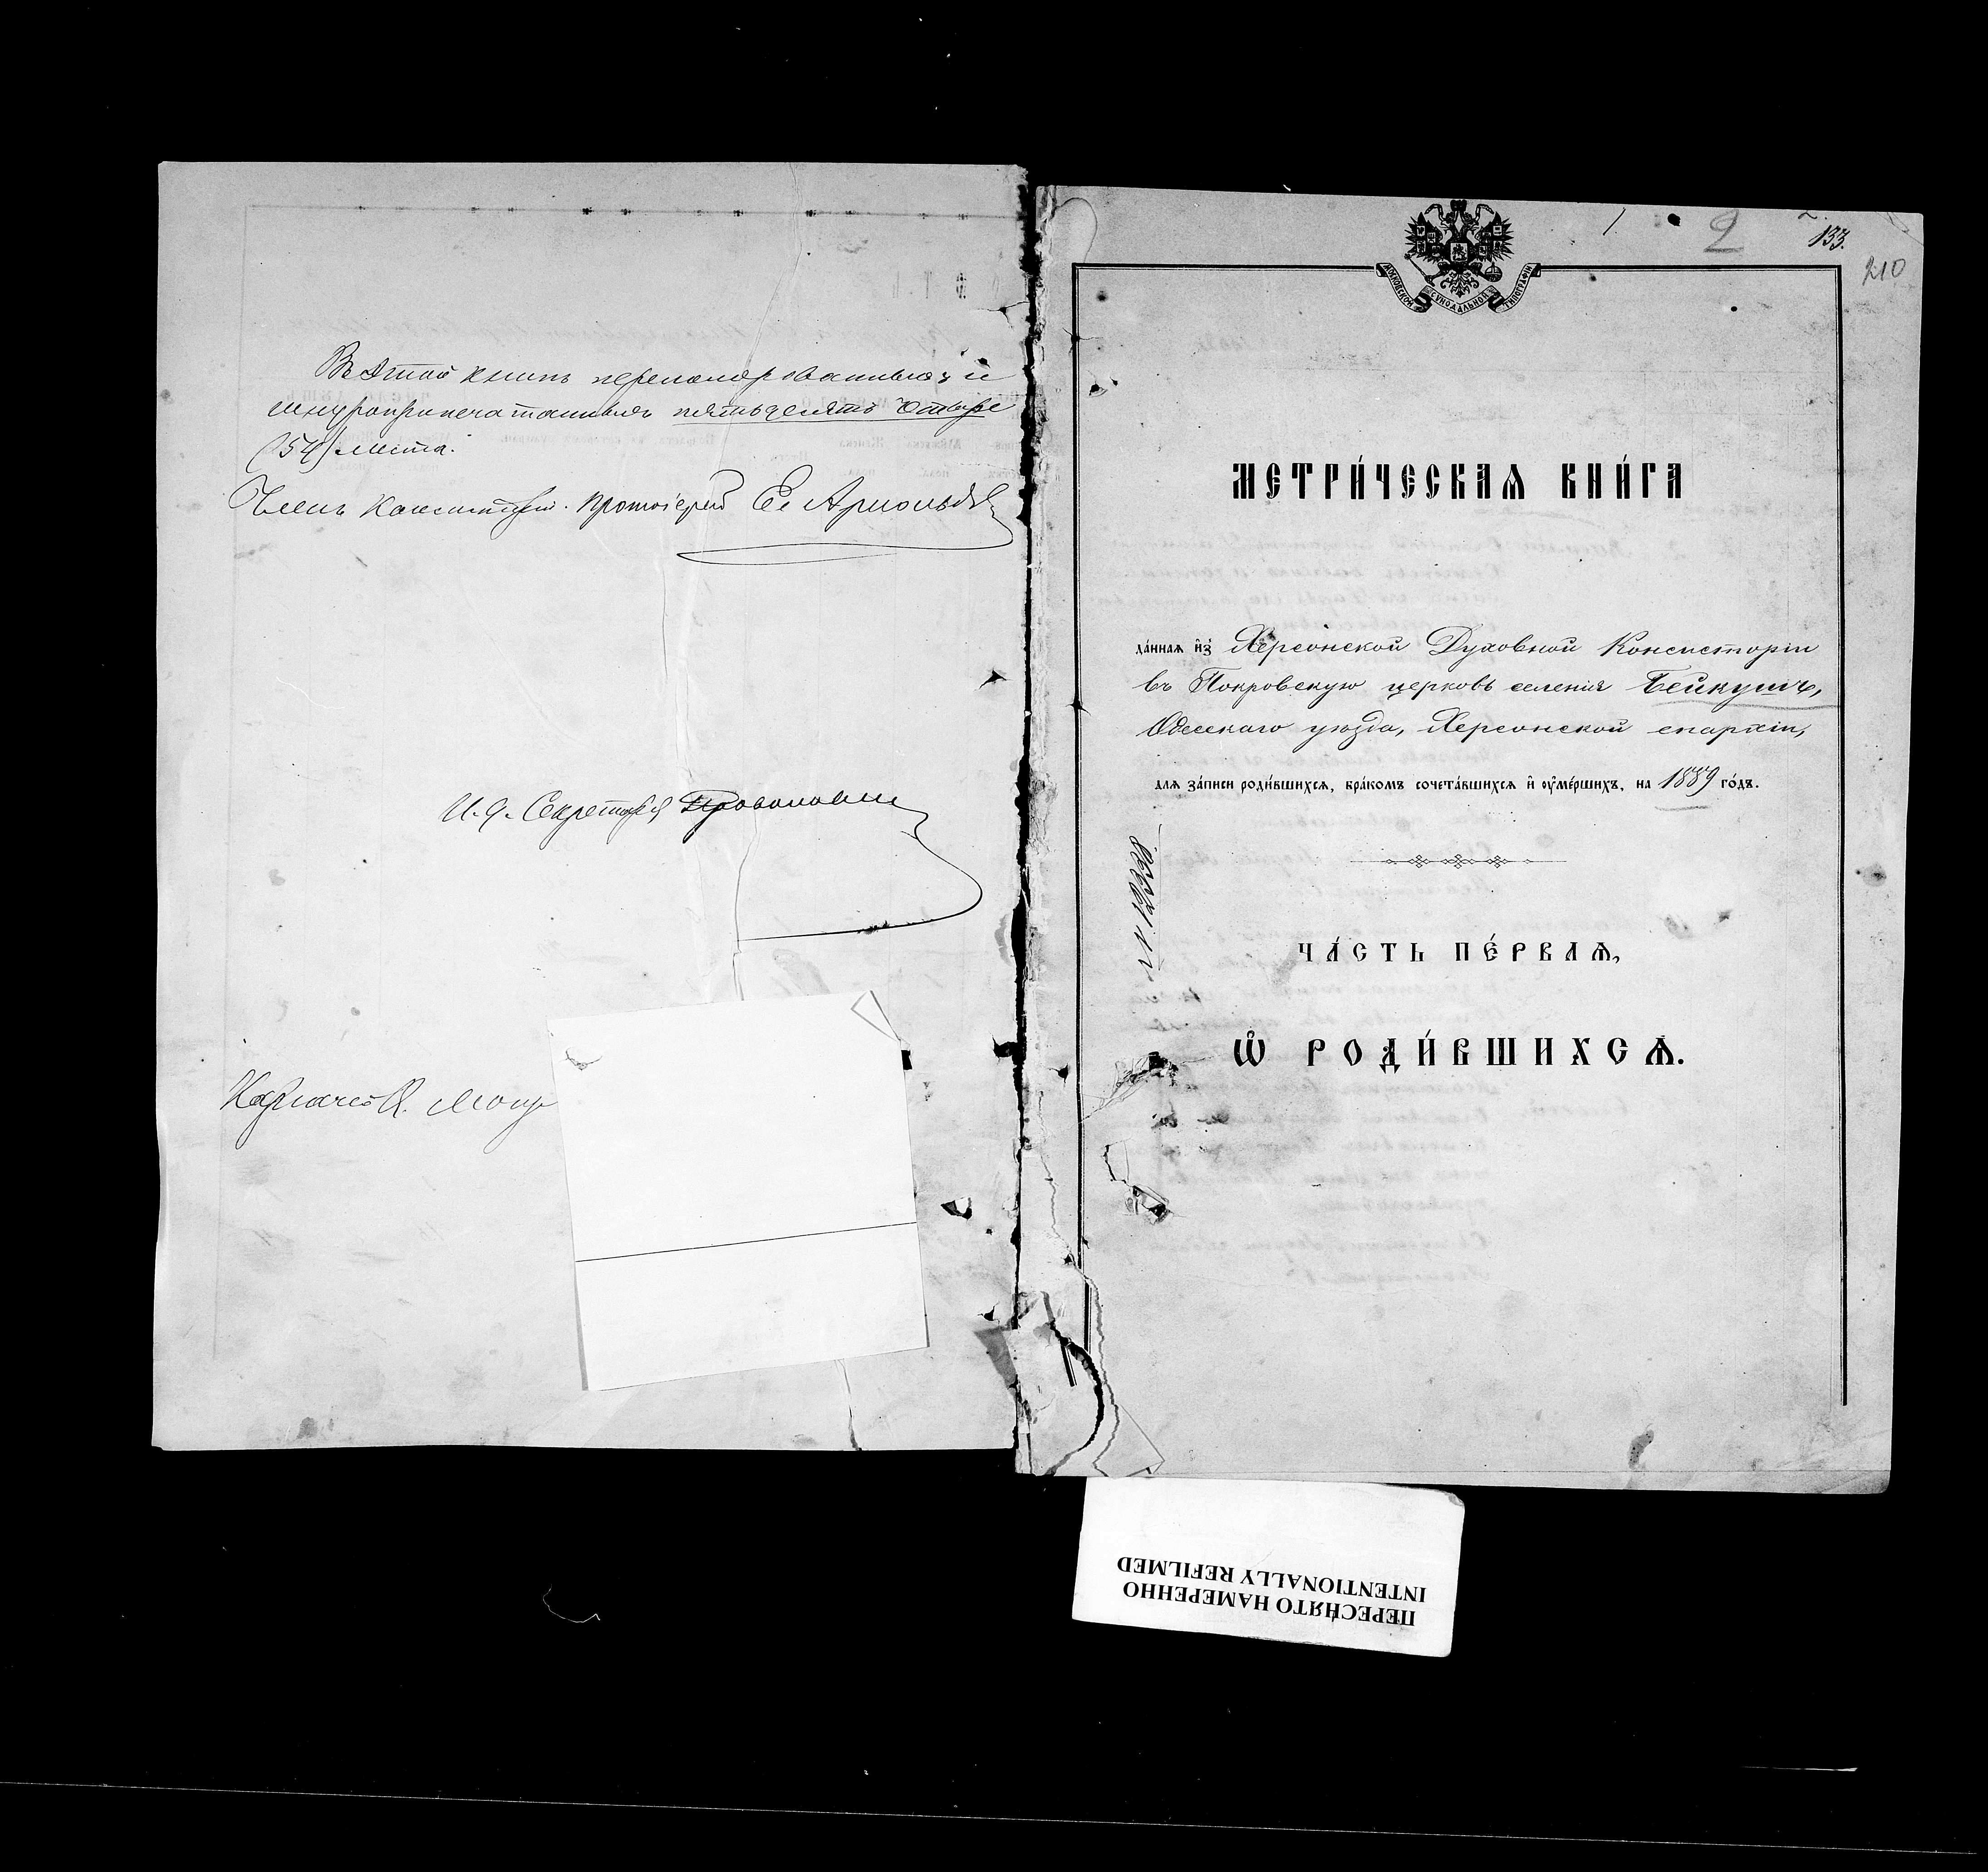 Въ этой книгѣ перенумерованныхъ и
шнуроприпечатанныхъ пятьдесятъ четыре
(54) листа.
Членъ Консисторіи. Протоіерей Арнольдовъ
И. д. Секретаря
2
133.
210
МОСКОВСКОЙ СѴНОДАЛЬНОЙ ТИПОГРАФІИ
МЕТРИ́ЧЕСКАѦ КНИ́ГА
да́ннаѧ и҆з̾ Херсонской Духовной Консисторіи
въ Покровскую церковь селенія Бейкушъ,
Одесскаго уѣзда, Херсонской епархіи,
для за́писи роди́вшихсѧ, бра́комъ сочета́вшихсѧ и҆ ᲂу҆ме́ршихъ, на 1889 го́дъ.
№ 12338
ЧА́СТЬ ПЕ́РВАѦ,
Ѽ РОДИ́ВШИХСѦ.
ПЕРЕСНЯТО НАМЕРЕННО
INTENTIONALLY REFILMED